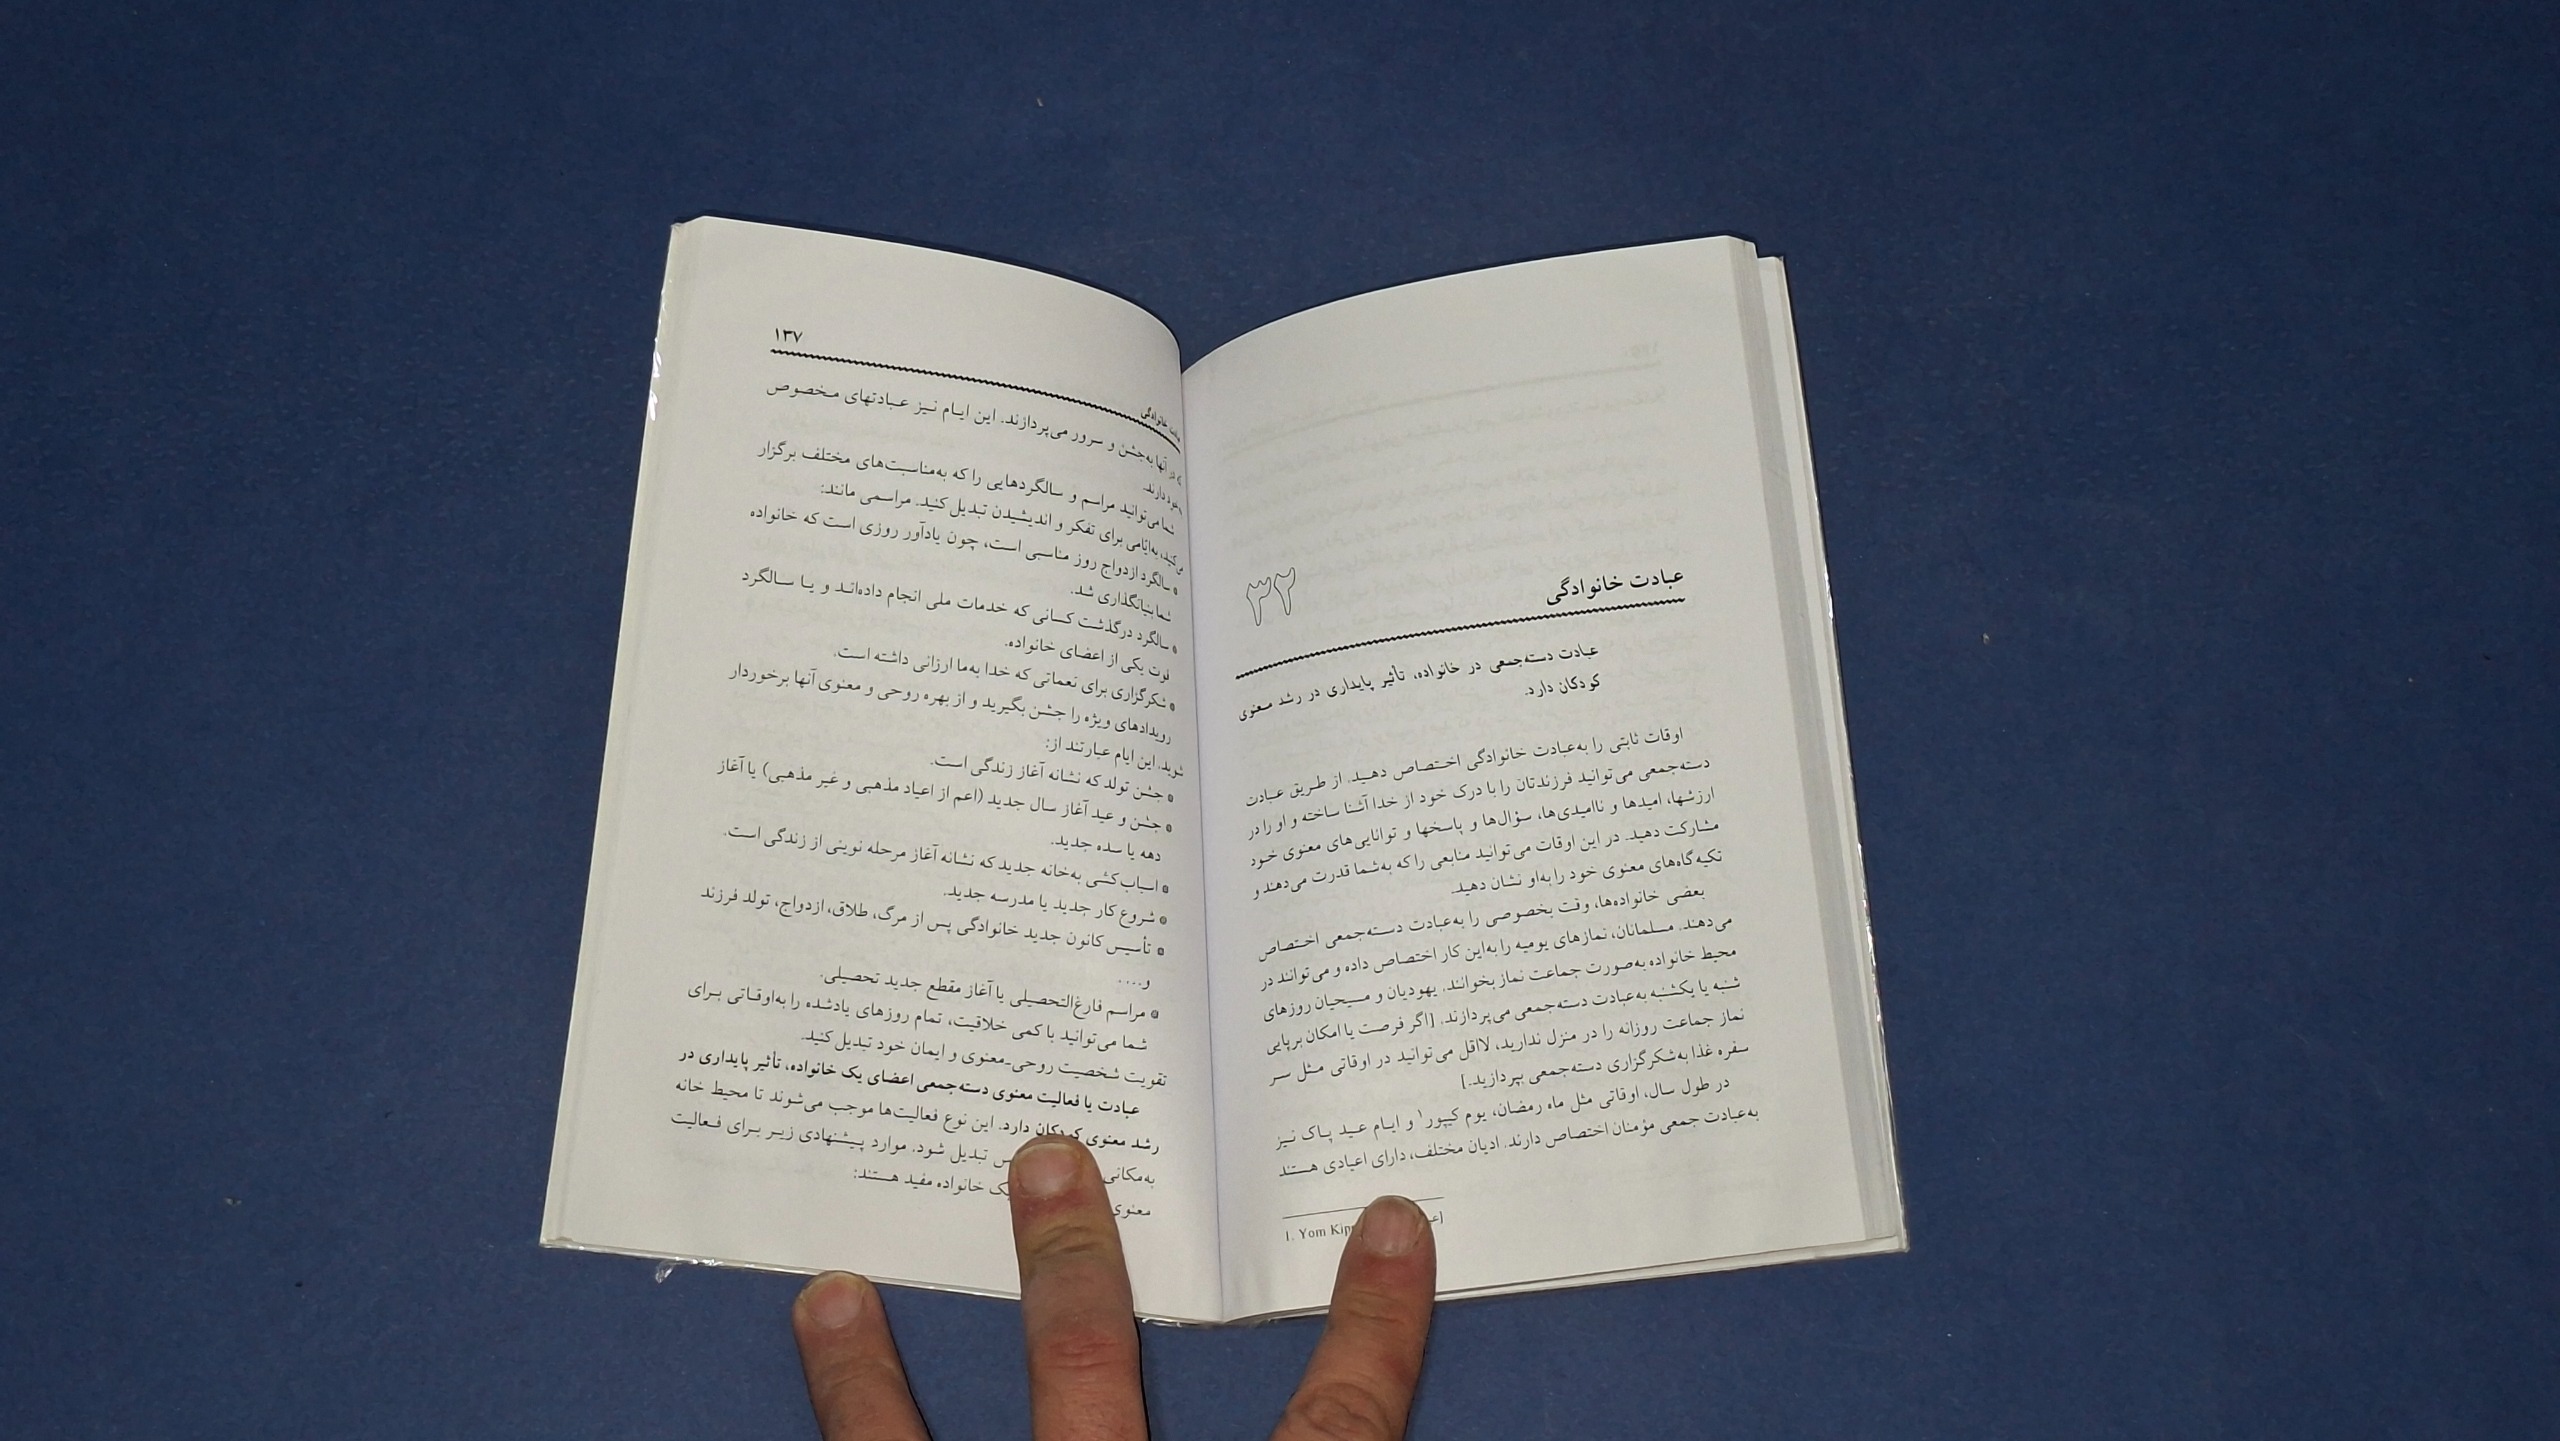 عبادت خانوادگی
۳۲
عبادت دسته‌جمعی در خانواده، تأثیر پایداری در رشد معنوی
کودکان دارد.
اوقات ثابتی را به‌عبادت خانوادگی اختصاص دهید. از طریق عبادت
دسته‌جمعی می‌توانید فرزندتان را با درک خود از خدا آشنا ساخته و او را در
ارزشها، امیدها و ناامیدی‌ها، سؤال‌ها و پاسخها و توانایی‌های معنوی خود
مشارکت دهید. در این اوقات می‌توانید منابعی را که به‌شما قدرت می‌دهند و
تکیه‌گاه‌های معنوی خود را به‌او نشان دهید.
بعضی خانواده‌ها، وقت بخصوصی را به‌عبادت دسته‌جمعی اختصاص
می‌دهند. مسلمانان، نمازهای یومیه را به‌این کار اختصاص داده و می‌توانند در
محیط خانواده به‌صورت جماعت نماز بخوانند. یهودیان و مسیحیان روزهای
شنبه یا یکشنبه به‌عبادت دسته‌جمعی می‌پردازند. [اگر فرصت یا امکان برپایی
نماز جماعت روزانه را در منزل ندارید، لااقل می‌توانید در اوقاتی مثل سر
سفره غذا به‌شکرگزاری دسته‌جمعی بپردازید.]
در طول سال، اوقاتی مثل ماه رمضان، یوم کیپور۱ و ایام عید پاک نیز
به‌عبادت جمعی مؤمنان اختصاص دارند. ادیان مختلف، دارای اعیادی هستند
1. Yom
۱۳۷
عبادت خانوادگی
که در آنها به‌جشن و سرور می‌پردازند. این ایام نیز عبادتهای مخصوص
به‌خود دارند.
شما می‌توانید مراسم و سالگردهایی را که به‌مناسبت‌های مختلف برگزار
می‌کنید، به‌ایّامی برای تفکر و اندیشیدن تبدیل کنید. مراسمی مانند:
* سالگرد ازدواج روز مناسبی است، چون یادآور روزی است که خانواده
شما بنیانگذاری شد.
* سالگرد درگذشت کسانی که خدمات ملی انجام داده‌اند و یا سالگرد
فوت یکی از اعضای خانواده.
* شکرگزاری برای نعماتی که خدا به‌ما ارزانی داشته است.
رویدادهای ویژه را جشن بگیرید و از بهره روحی و معنوی آنها برخوردار
شوید. این ایام عبارتند از:
* جشن تولد که نشانه آغاز زندگی است.
* جشن و عید آغاز سال جدید (اعم از اعیاد مذهبی و غیر مذهبی) یا آغاز
دهه یا سده جدید.
* اسباب‌کشی به‌خانه جدید که نشانه آغاز مرحله نوینی از زندگی است.
* شروع کار جدید یا مدرسه جدید.
* تأسیس کانون جدید خانوادگی پس از مرگ، طلاق، ازدواج، تولد فرزند
و....
* مراسم فارغ‌التحصیلی یا آغاز مقطع جدید تحصیلی.
شما می‌توانید با کمی خلاقیت، تمام روزهای یادشده را به‌اوقاتی برای
تقویت شخصیت روحی‌ـ‌معنوی و ایمان خود تبدیل کنید.
عبادت یا فعالیت معنوی دسته‌جمعی اعضای یک خانواده، تأثیر پایداری در
رشد معنوی کودکان دارد. این نوع فعالیت‌ها موجب می‌شوند تا محیط خانه
به‌مکانی تبدیل شود. موارد پیشنهادی زیر برای فعالیت
معنوی یک خانواده مفید هستند: